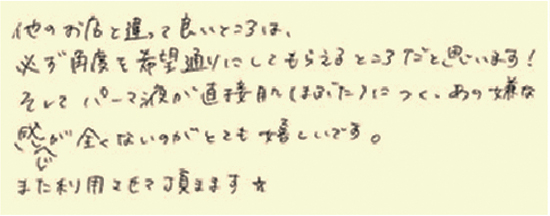 他のお店と違って良いところは、
必ず角度を希望通りにしてもらえるところだと思います！
そしてパーマ液が直接肌(まぶた)につく、あの嫌な
感じが全くないのがとても嬉しいです。
また利用させて頂きます★